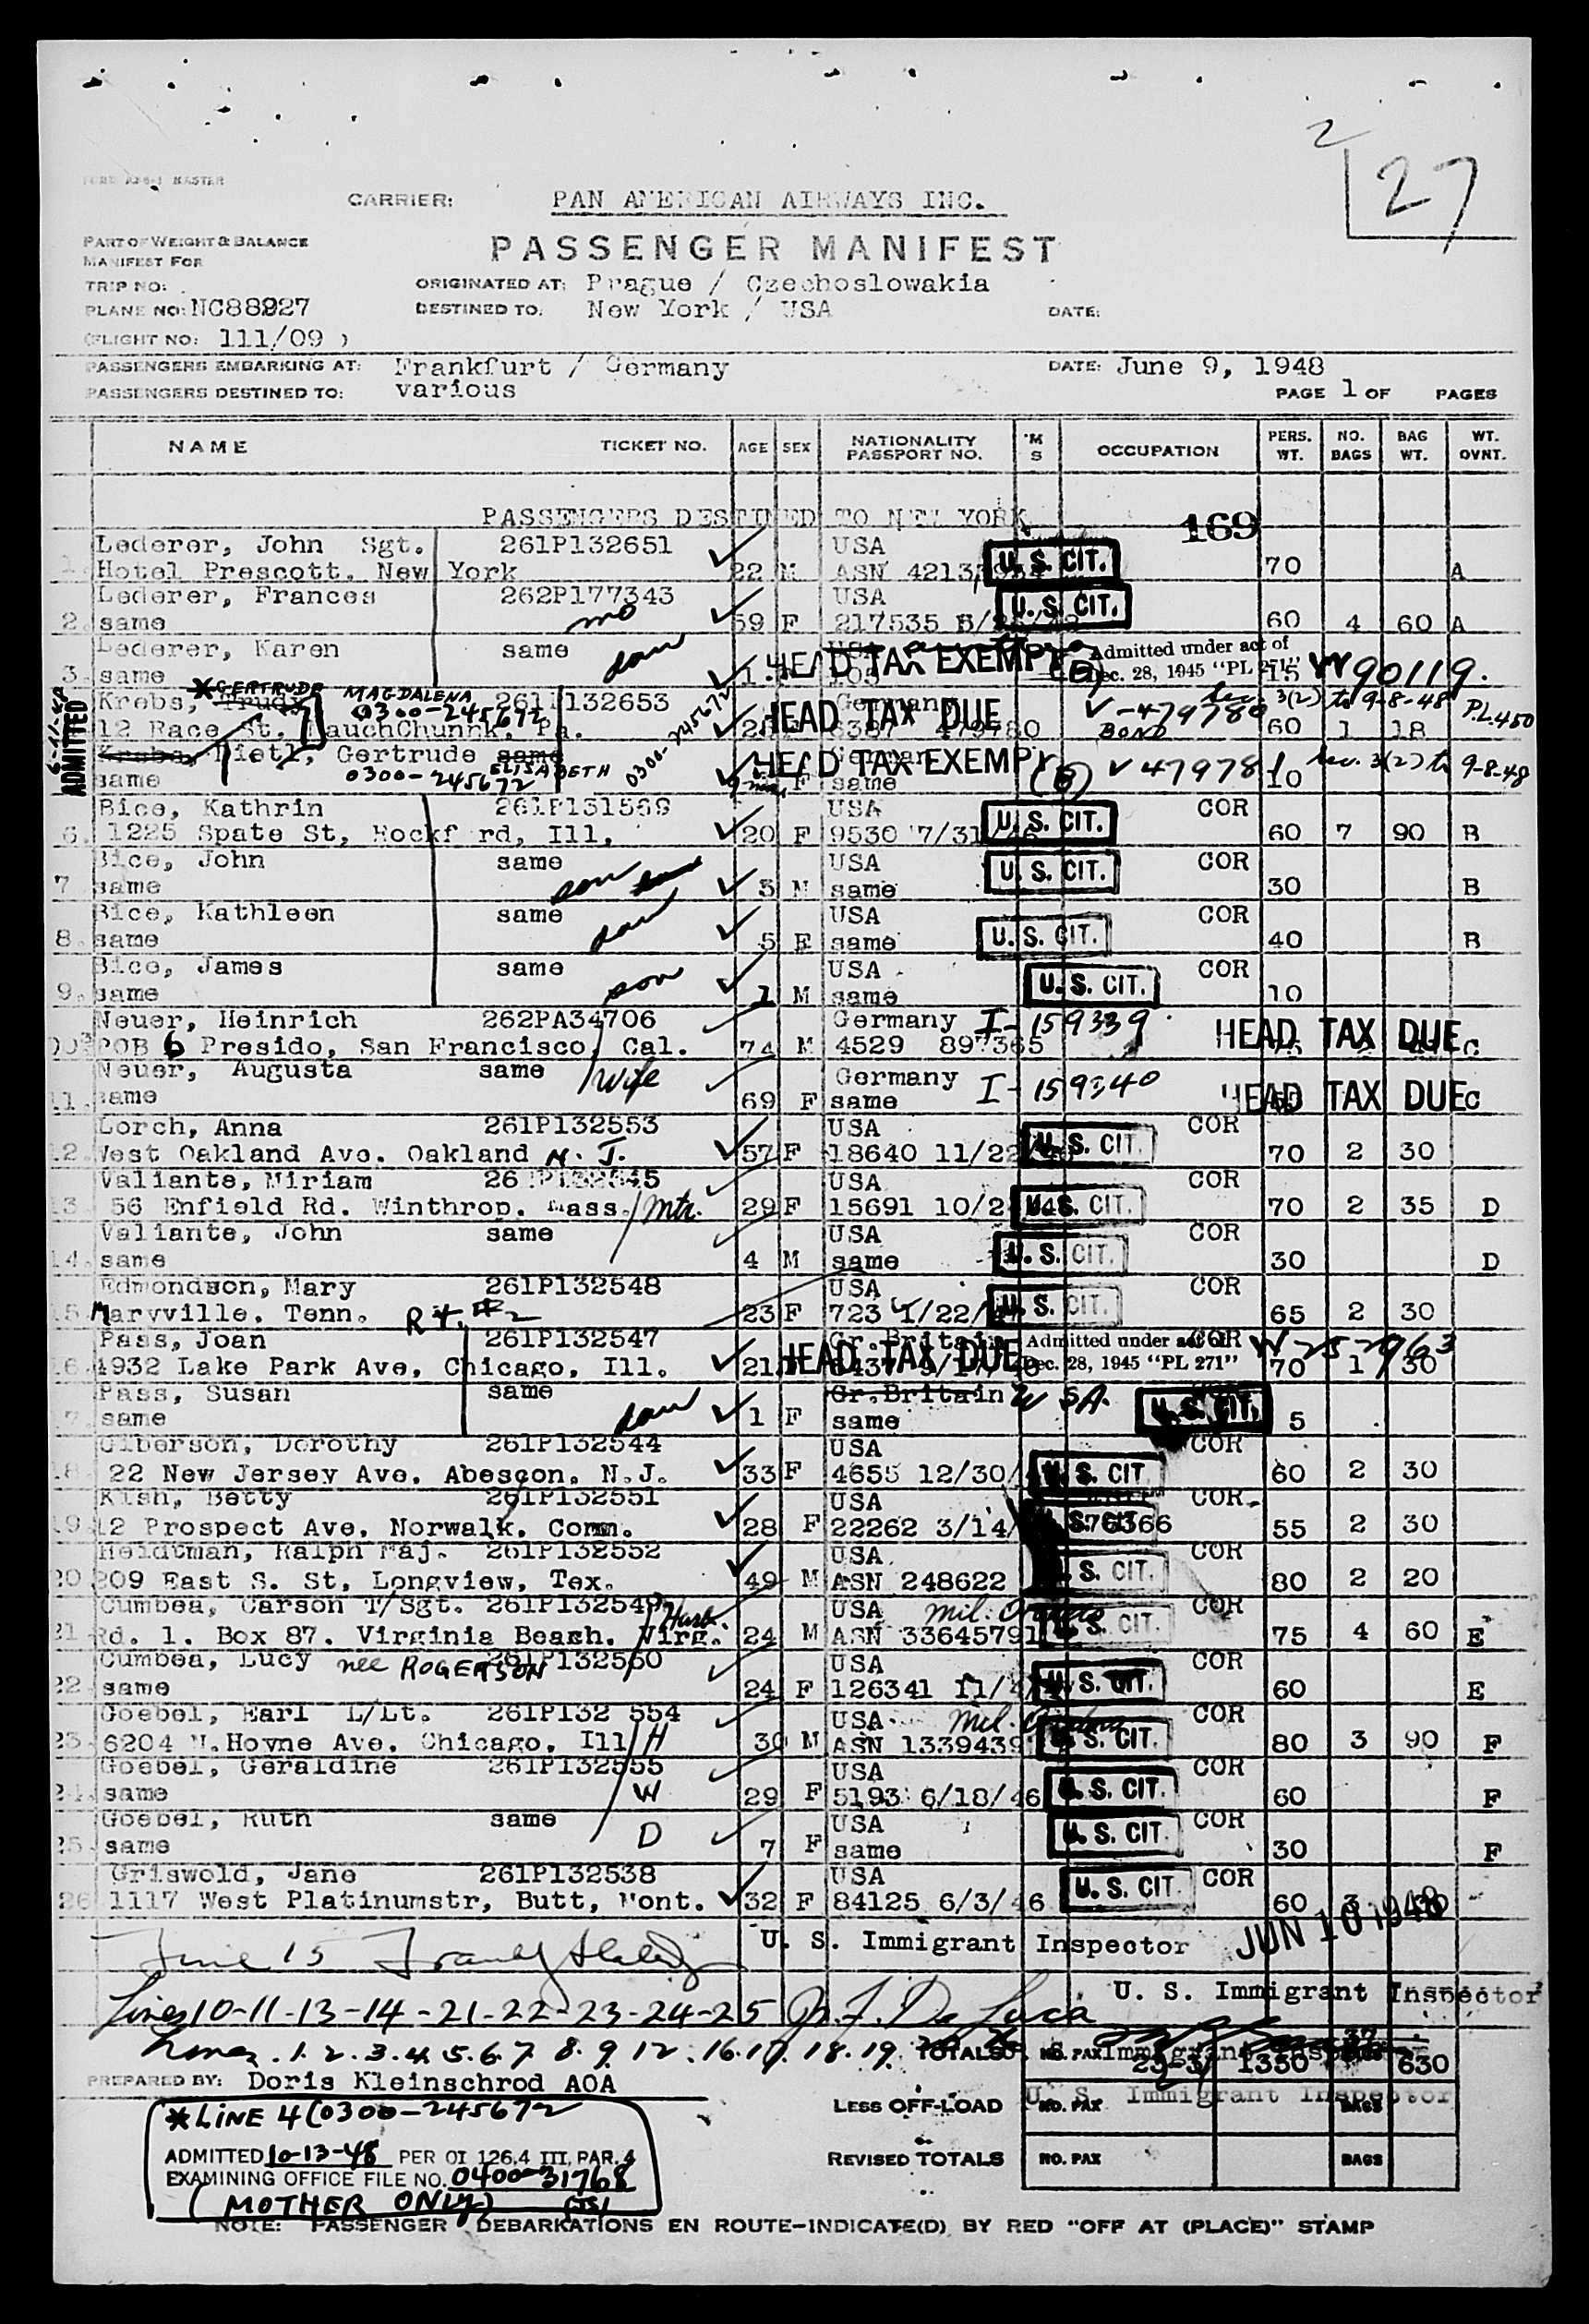 2
27
FORM MASTER
CARRIER: PAN AMERICAN AIRWAYS INC.
PART OF WEIGHT & BALANCE
MANIFEST FOR
PASSENGER MANIFEST
TRIP NO:
ORIGINATED AT: Prague / Czechoslowakia
PLANE NO: NC88927
DESTINED TO: New York / USA
DATE:
(FLIGHT NO: 111/09 )
PASSENGERS EMBARKING AT: Frankfurt / Germany
DATE: June 9, 1948
PASSENGERS DESTINED TO: various
PAGE 1 OF PAGES
NAME TICKET NO. AGE SEX NATIONALITY PASSPORT NO. M S OCCUPATION PERS. WT. NO. BAGS BAG WT. WT. OVNT.
PASSENGERS DESTINED TO NEW YORK
169
Lederer, John Sgt. 261P132651 USA U. S. CIT.
1. Hotel Prescott. New York 22 M ASN 70 A
Lederer, Frances 262P177343 USA U. S. CIT.
2. same mo 59 F 217535 60 4 60 A
Lederer, Karen same dau USA HEAD TAX EXEMPT Admitted under act of
3. same 1 105 Dec. 28, 1945 "PL 271" 15 W90119.
Krebs, Trudy *GERTRUDE MAGDALENA 0300-245672 261P132653 German HEAD TAX DUE V-479780 Sec 3(2) to 9-8-48 P.L. 450
12 Race St. LauchChunnk, Pa. 479780 BOND 60 1 18
6-11-48 ADMITTED
Krebs, Dietl, Gertrude same ELISABETH 0300-245672 German HEAD TAX EXEMPT
same 0300-245672 9 mos F same (B) V 479781 10 Sec. 3(2) to 9-8-48
Bice, Kathrin 261P131569 USA U. S. CIT. COR
6. 1225 Spate St, Rockf rd, Ill, 20 F 9530 7/31/46 60 7 90 B
Bice, John same USA U. S. CIT. COR
7 same son 3 M same 30 B
Bice, Kathleen same USA U. S. CIT. COR
8. same dau 5 F same 40 B
Bice, James same USA U. S. CIT. COR
9. same son 1 M same 10
Neuer, Heinrich 262PA34706 Germany I-159339 HEAD TAX DUE
10 POB 6 Presido, San Francisco, Cal. 74 M 4529 897365 C
Neuer, Augusta same Wife Germany I-159340 HEAD TAX DUE
11. same 69 F same C
Lorch, Anna 261P132553 USA U. S. CIT. COR
12. West Oakland Ave. Oakland N. J. 57 F 18640 11/22 70 2 30
Valiante, Miriam 261P132545 USA U. S. CIT. COR
13. 56 Enfield Rd. Winthrop. Mass. Mtr. 29 F 15691 10/2 70 2 35 D
Valiante, John same USA U. S. CIT. COR
14. same 4 M same 30 D
Edmondson, Mary 261P132548 USA U. S. CIT. COR
15 Maryville. Tenn. Rt. #2 23 F 723 1/22/47 65 2 30
Pass, Joan 261P132547 Gr. Britain HEAD TAX DUE Admitted under act of COR
16. 4932 Lake Park Ave, Chicago, Ill. 21 Dec. 28, 1945 "PL 271" 70 1 30
Pass, Susan same Gr. Britain USA. U. S. CIT.
17. same dau 1 F same 5
Giberson, Dorothy 261P132544 USA U. S. CIT. COR
18. 22 New Jersey Ave. Abescon. N.J. 33 F 4655 12/30/ 60 2 30
Kish, Betty 261P132551 USA COR.
19. 12 Prospect Ave. Norwalk. Conn. 28 F 22262 3/14/ 76366 55 2 30
Heidtman, Ralph Maj. 261P132552 USA U. S. CIT. COR
20 209 East S. St, Longview, Tex. 49 M ASN 248622 80 2 20
Cumbea, Carson T/Sgt. 261P132549 Husb. USA mil. Orders U. S. CIT. COR
21 Rd. 1. Box 87. Virginia Beach. Virg. 24 M ASN 33645791 75 4 60 E
Cumbea, Lucy nee ROGERSON 261P132550 USA U. S. CIT. COR
22 same 24 F 126341 11/ 60 E
Goebel, Earl 1/Lt. 261P132 554 USA mil. Orders U. S. CIT. COR
23. 6204 N. Hoyne Ave. Chicago, Ill H 30 M ASN 1339439 80 3 90 F
Goebel, Geraldine 261P132555 USA U. S. CIT. COR
24. same W 29 F 5193 6/18/46 60 F
Goebel, Ruth same USA U. S. CIT. COR
25. same D 7 F same 30 F
Griswold, Jane 261P132538 USA U. S. CIT. COR
26 1117 West Platinumstr, Butt, Mont. 32 F 84125 6/3/46 60 3 30
U. S. Immigrant Inspector JUN 10 1948
U. S. Immigrant Inspector
Lines 10-11-13-14-21-22-23-24-25
Lines. 1. 2. 3. 4. 5. 6. 7. 8. 9. 12. 16. 17. 18. 19. TOTALS NO. PAX 1350 630
PREPARED BY: Doris Kleinschrod AOA
LESS OFF-LOAD NO. PAX U. S. Immigrant Inspector BAGS
*LINE 4 (0300-245672
ADMITTED 10-13-48 PER OI 126.4 III, PAR. 4
EXAMINING OFFICE FILE NO. 0400-31768
(MOTHER ONLY)
REVISED TOTALS NO. PAX BAGS
NOTE: PASSENGER DEBARKATIONS EN ROUTE-INDICATE(D) BY RED "OFF AT (PLACE)" STAMP